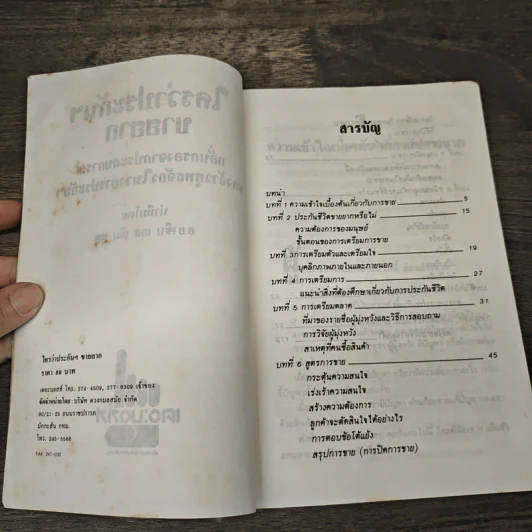 ใครว่าประกันฯ ขายยาก
ราคา 89 บาท
เดอะบอสส์ โทร. 374-4509, 577-6309 เจ้าของ
จัดจำหน่ายโดย: บริษัท ดวงกมลสมัย จำกัด
90/21-25 ถนนราชปรารภ
มักกะสัน กทม.
โทร. 245-5586
FAX. 247-1030
สารบัญ
บทนำ
บทที่ 1 ความเข้าใจเบื้องต้นเกี่ยวกับการขาย 5
บทที่ 2 ประกันชีวิตขายยากหรือไม่ 15
ความต้องการของมนุษย์
ขั้นตอนของการเตรียมการขาย
บทที่ 3 การเตรียมตัวและเตรียมใจ 19
บุคลิกภาพภายในและภายนอก
บทที่ 4 การเตรียมการ 27
แนะนำสิ่งที่ต้องศึกษาเกี่ยวกับการประกันชีวิต
บทที่ 5 การเตรียมตลาด 31
ที่มาของรายชื่อผู้มุ่งหวังและวิธีการสอบถาม
การวิจัยผู้มุ่งหวัง
สาเหตุที่คนซื้อสินค้า
บทที่ 6 สูตรการขาย 45
กระตุ้นความสนใจ
เร่งเร้าความสนใจ
สร้างความต้องการ
ลูกค้าจะตัดสินใจได้อย่างไร
การตอบข้อโต้แย้ง
สรุปการขาย (การปิดการขาย)